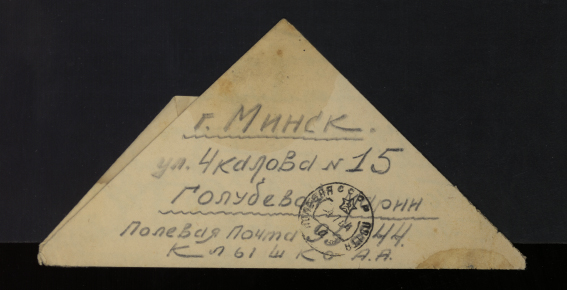 г. Минск.
ул. Чкалова N 15
Голубева
Полевая Почта 44.
Клышко А.А.